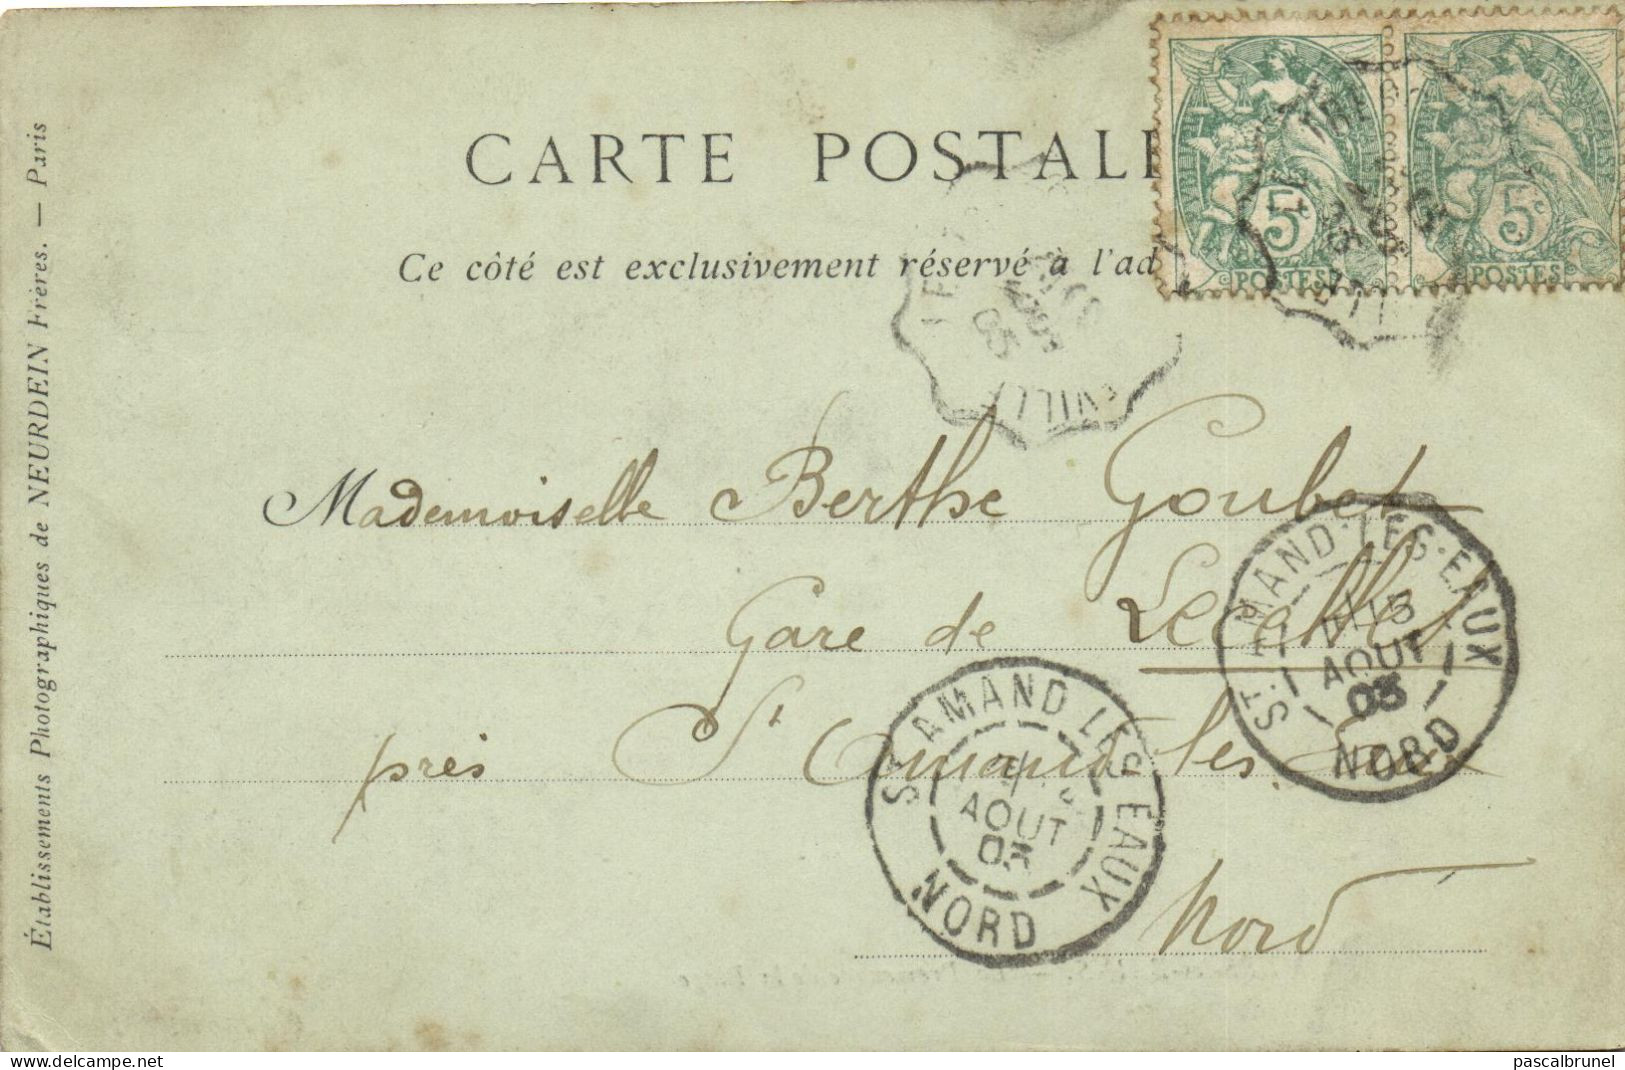 CARTE POSTALE
Ce côté est exclusivement réservé à l'ad
Établissements Photographiques de NEURDEIN Frères. — Paris
5c
POSTES
5c
POSTES
AOUT
03
VILLE
Mademoiselle Berthe Goubet
Gare de Lecelles
près St Amand les Eaux
Nord
ST AMAND-LES-EAUX
AOUT
03
NORD
ST AMAND LES EAUX
AOUT
03
NORD
www.delcampe.net
pascalbrunel